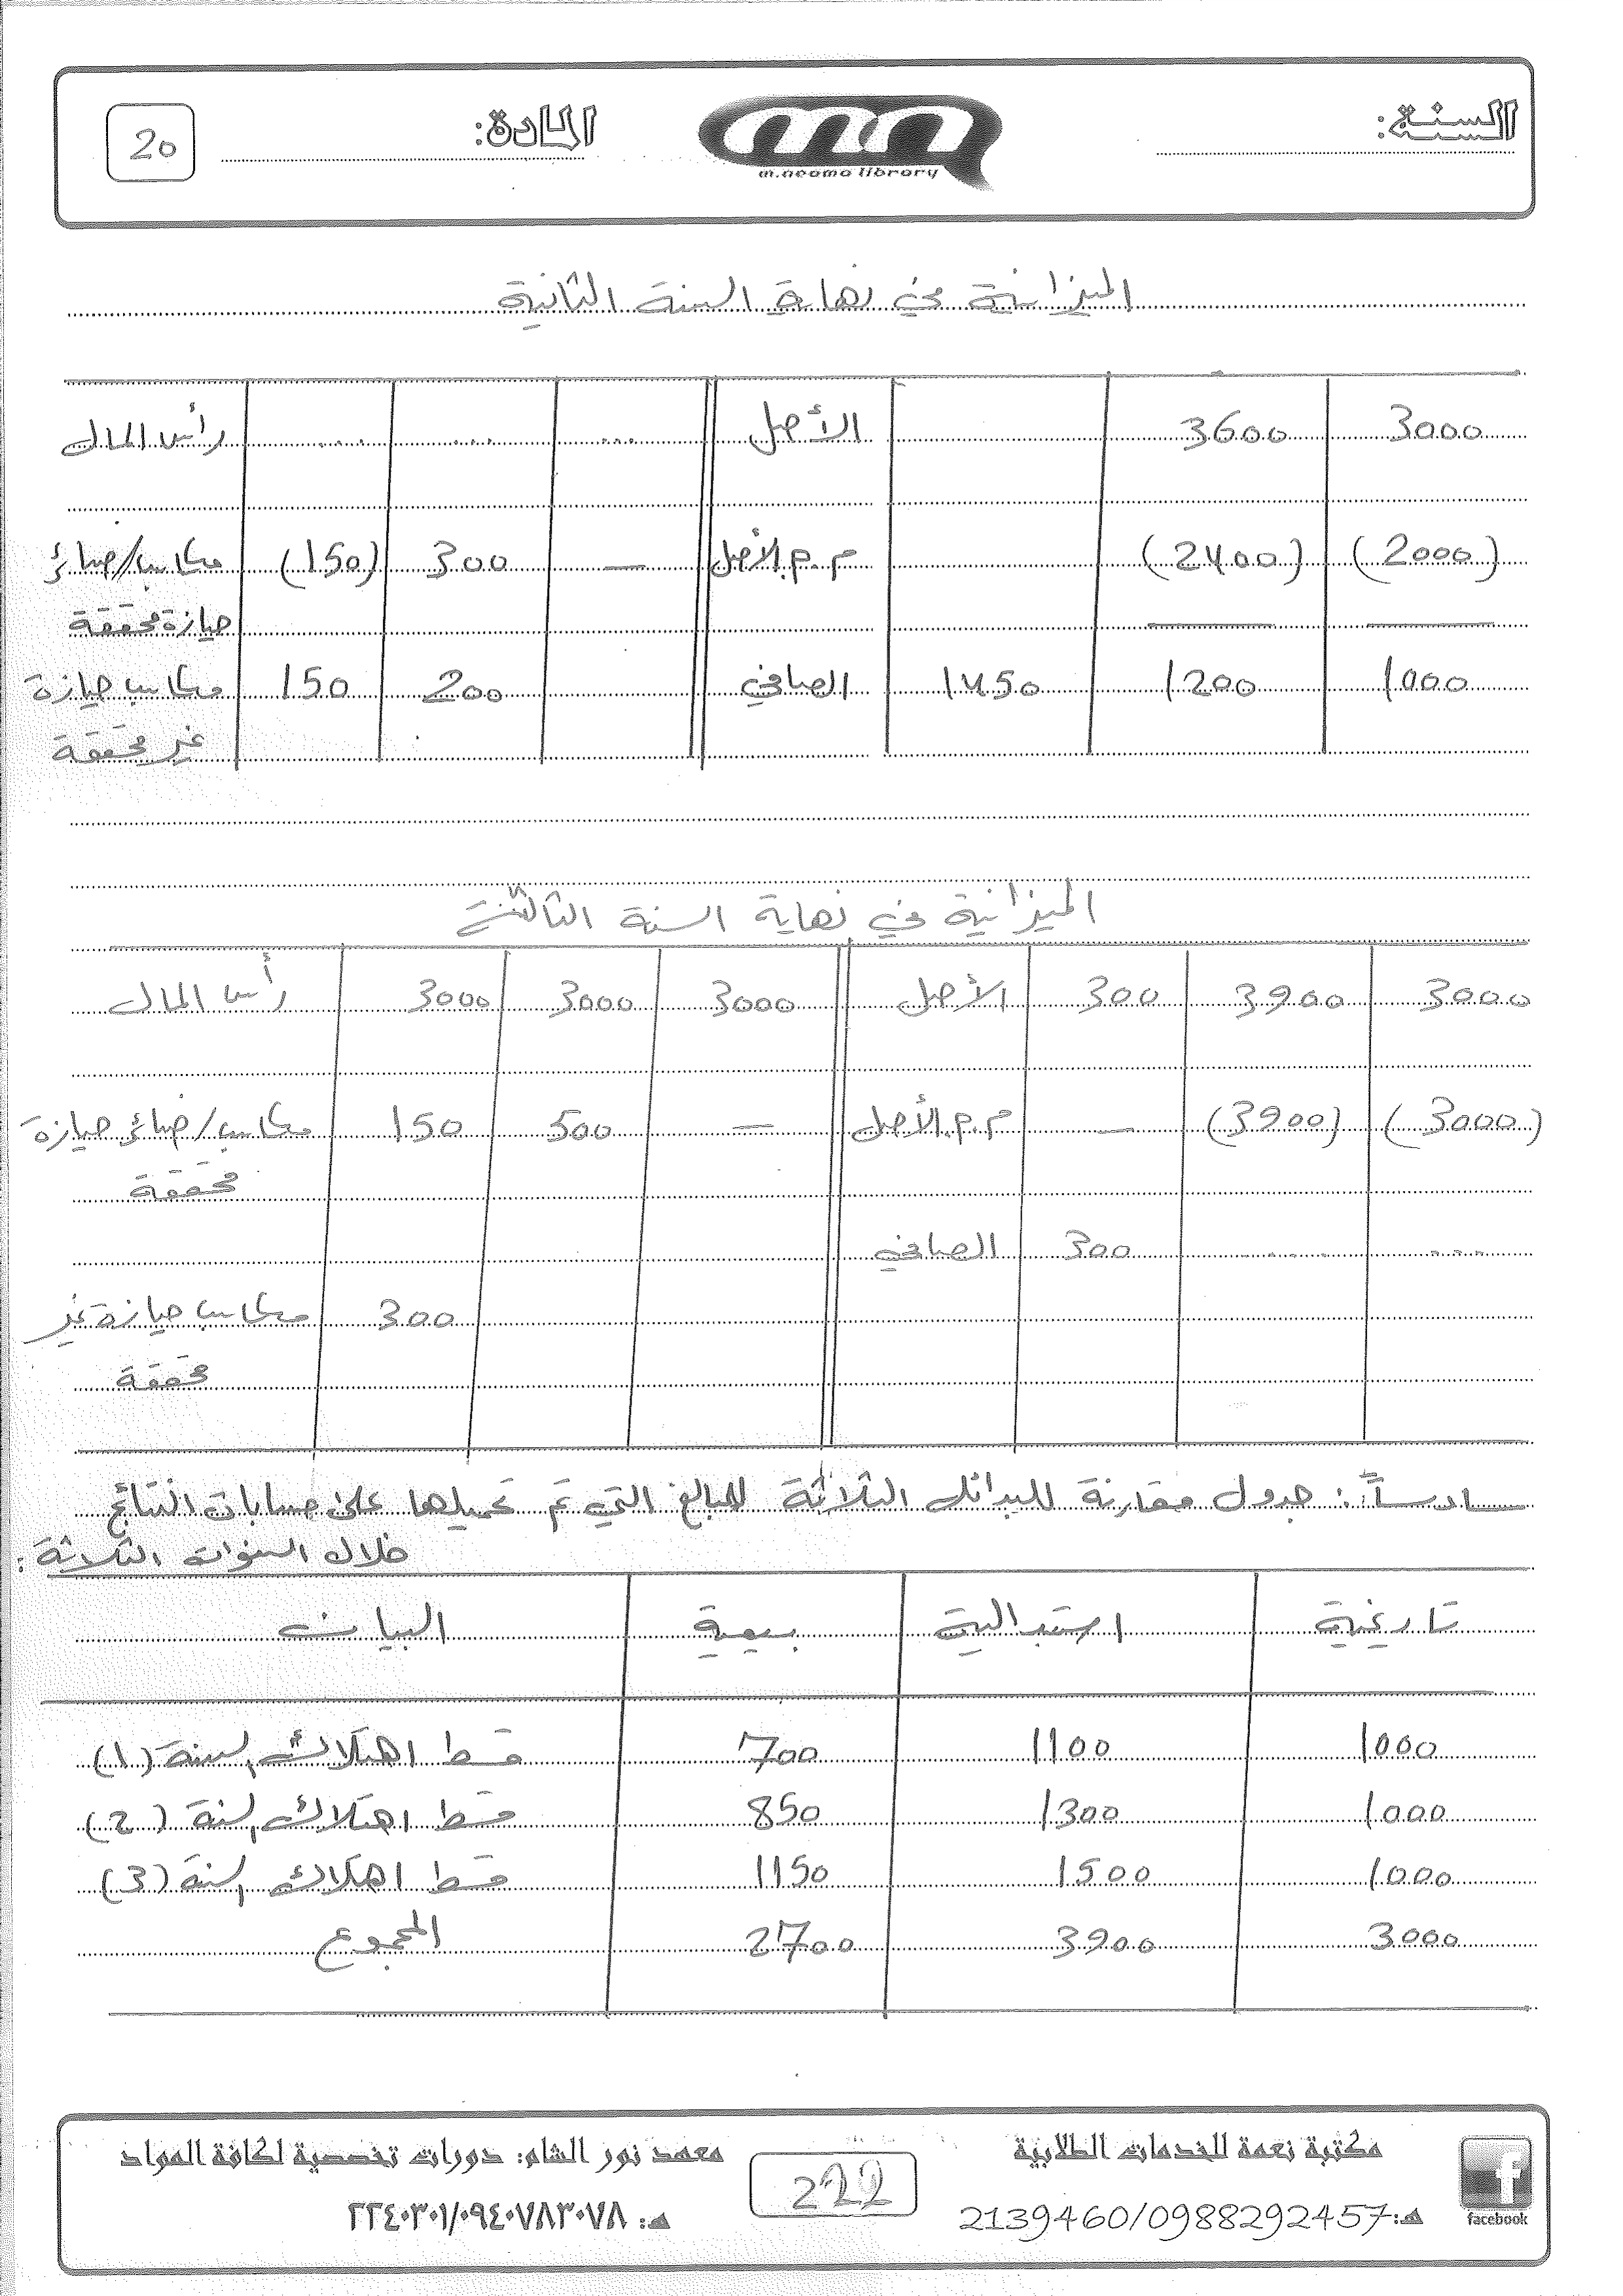 السنة: المادة: 20
m.neoma library
الميزانية في نهاية السنة الثانية
3000 3600 الأصل ... ... ... رأس المال
(2000) (2400) م.م.الأصل — 300 (150) مكاسب/ضائر
حيازة محققة
1000 1200 1450 الصافي 200 150 مكاسب حيازة
غير محققة
الميزانية في نهاية السنة الثالثة
3000 3900 300 الأصل 3000 3000 3000 رأس المال
(3000) (3900) — م.م.الأصل — 500 150 مكاسب/ضائر حيازة
محققة
... ... 300 الصافي
300 مكاسب حيازة غير
محققة
سادساً: جدول مقارنة للبدائل الثلاثة للمبالغ التي تم تحميلها على حسابات النتائج
خلال السنوات الثلاثة:
تاريخية استبدالية بيعية البيان
1000 1100 700 قسط اهتلاك لسنة (1)
1000 1300 850 قسط اهتلاك لسنة (2)
1000 1500 1150 قسط اهتلاك لسنة (3)
3000 3900 2700 المجموع
مكتبة نعمة للخدمات الطلابية
هـ: 2139460/0988292457
facebook
222
معهد نور الشام: دورات تخصصية لكافة المواد
هـ: ٢٢٤٠٣٠١/٠٩٤٠٧٨٣٠٧٨